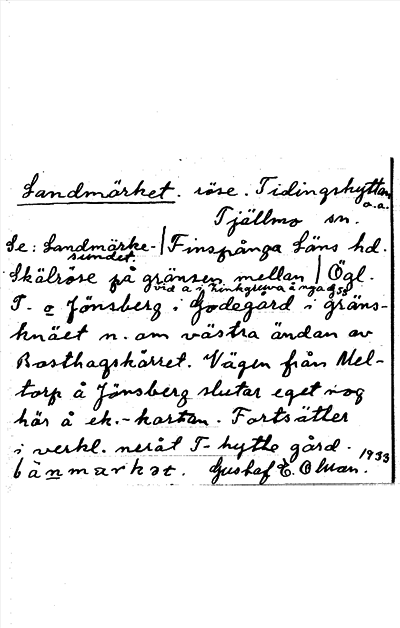 Landmärket. röse. Tidingshyttan
o.a.
Tjällmo sn.
Se: Landmärke- Finspånga läns hd.
sundet.
Skälröse på gränsen mellan Ögl.
vid a i Zinkgruva å nya
T. o Jönsberg i Godegård i gräns-
knäet n. om västra ändan av
Basthagskärret. Vägen från Mel-
torp å Jönsberg slutar eget nog
här å ek.-kartan. Fortsätter
i verkl. neråt T-hytte gård.
lànmarkət. Gustaf E. Olman. 1933